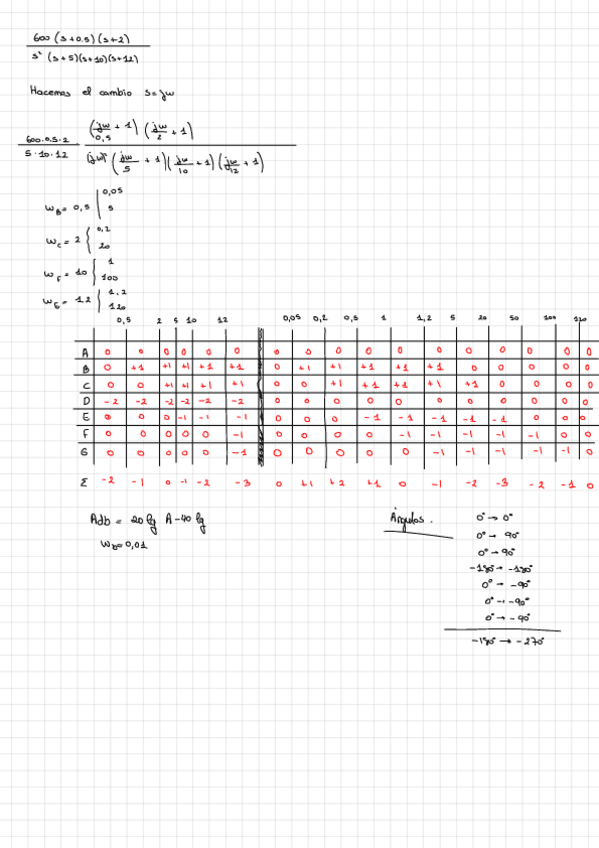 600 (s+0,5) (s+2)
s² (s+5)(s+10)(s+12)
Hacemos el cambio s=jw
600·0,5·2 (jw/0,5 + 1) (jw/2 + 1)
5·10·12 (jw)² (jw/5 + 1)(jw/10 + 1)(jw/12 + 1)
0,05
w_B = 0,5
5
0,2
w_C = 2
20
1
w_F = 10
100
1,2
w_G = 12
120
0,5 2 5 10 12 0,05 0,2 0,5 1 1,2 5 20 50 100 120
A 0 0 0 0 0 0 0 0 0 0 0 0 0 0 0 0 0
B 0 +1 +1 +1 +1 +1 0 +1 +1 +1 +1 +1 0 0 0 0 0
C 0 0 +1 +1 +1 +1 0 0 +1 +1 +1 +1 +1 0 0 0 0
D -2 -2 -2 -2 -2 -2 0 0 0 0 0 0 0 0 0 0 0
E 0 0 0 -1 -1 -1 0 0 0 -1 -1 -1 -1 -1 0 0 0
F 0 0 0 0 0 -1 0 0 0 0 -1 -1 -1 -1 -1 0 0
G 0 0 0 0 0 -1 0 0 0 0 0 -1 -1 -1 -1 -1 0
Σ -2 -1 0 -1 -2 -3 0 +1 +2 +1 0 -1 -2 -3 -2 -1 0
Adb = 20 lg A-40 lg
w_b=0,01
Ángulos.
0° → 0°
0° → 90°
0° → 90°
-180° → -180°
0° → -90°
0° → -90°
0° → -90°
-180° → -270°